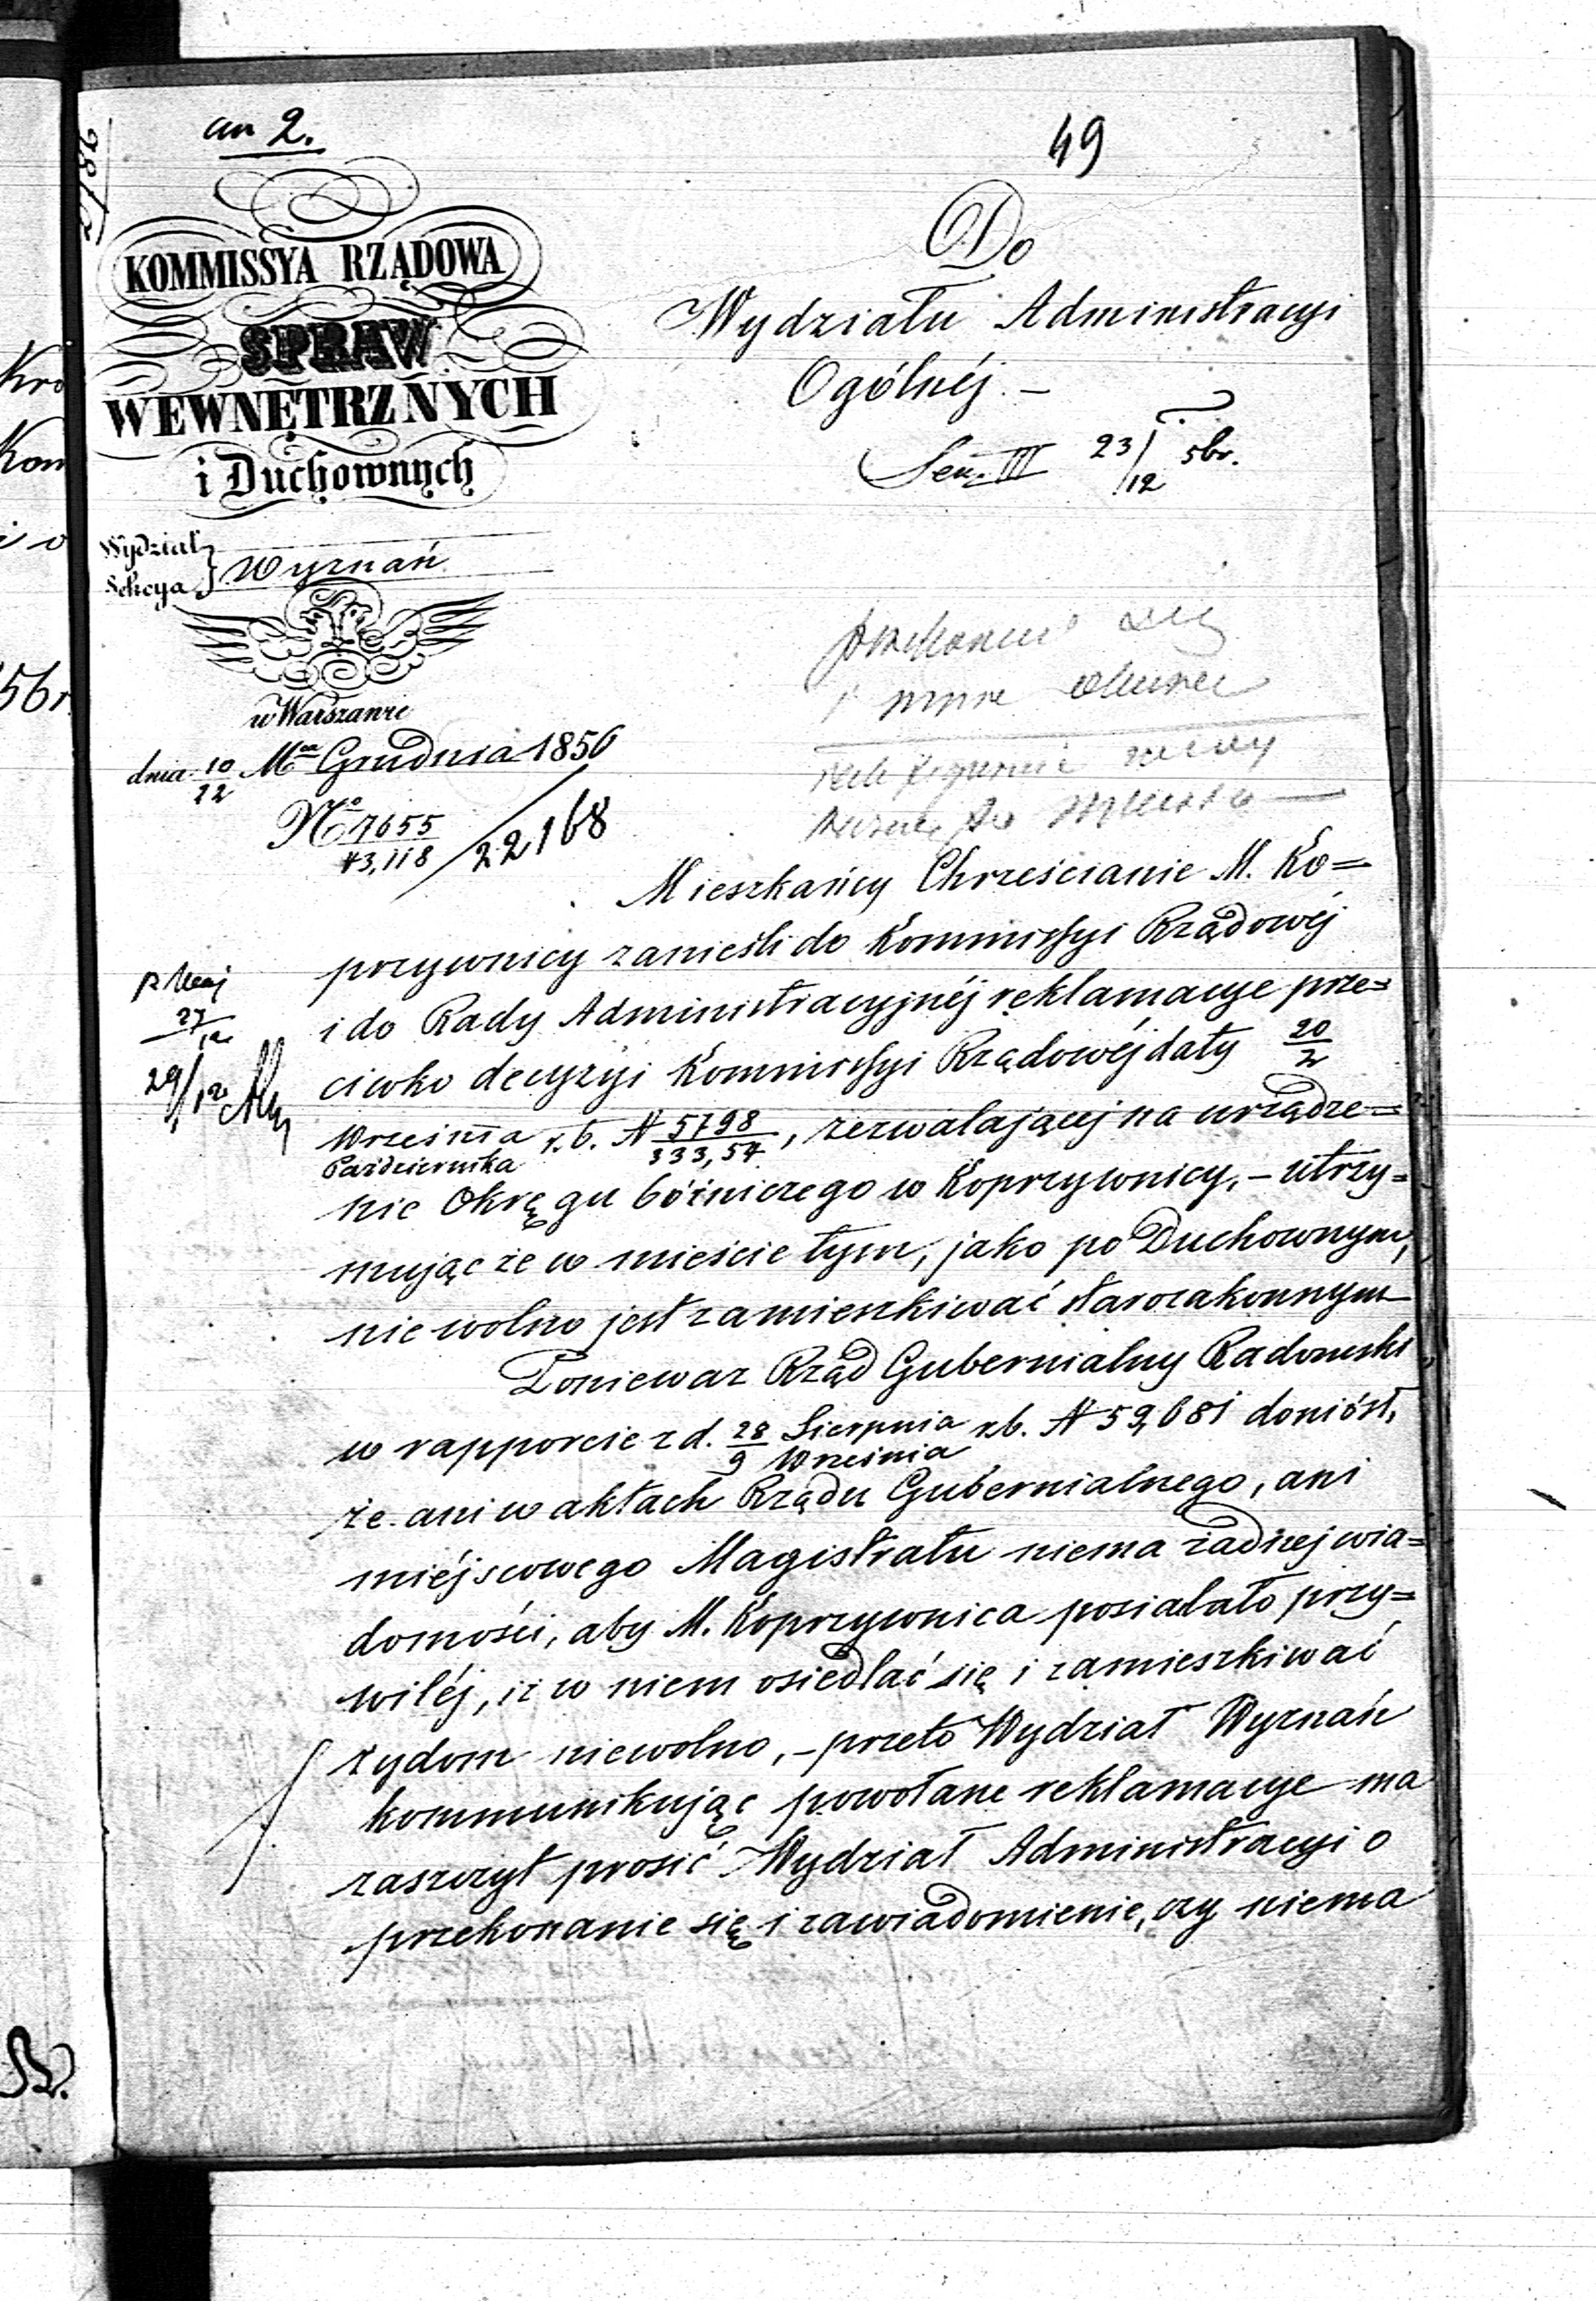 an 2.
49
KOMMISSYA RZĄDOWA
SPRAW
WEWNĘTRZNYCH
i Duchownych
Wydział
Sekcya
Wyznań
w Warszawie
dnia 10/22 Mca Grudnia 1856
No 7655/43,118 / 22168
Do
Wydziału Administracyi
Ogólnéj. –
Sek. III 23/12 56r.
Mieszkańcy Chrześcianie M. Ko=
przywnicy zanieśli do Kommissyi Rządowéj
i do Rady Administracyjnéj reklamacye prze=
ciwko decyzyi Kommissyi Rządowéj daty 20/2
Września/Października r.b. N 5798/333,54, zezwalającej na urządze=
nie Okręgu bóżniczego w Koprzywnicy, – utrzy=
mując że w mieście tym, jako po Duchownym,
nie wolno jest zamieszkiwać starozakonnym
Ponieważ Rząd Gubernialny Radomski
w rapporcie z d. 28/9 Sierpnia/Września r.b. N 59,681 doniósł,
że ani w aktach Rządu Gubernialnego, ani
miéjscowego Magistratu niema żadnej wia=
domości, aby M. Koprzywnica posiadało przy=
wiléj, iż w niem osiedlać się i zamieszkiwać
żydom niewolno, – przeto Wydział Wyznań
kommunikując powołane reklamacye ma
zaszczyt prosić Wydział Administracyi o
przekonanie się i zawiadomienie, czy niema
27/12
29/12